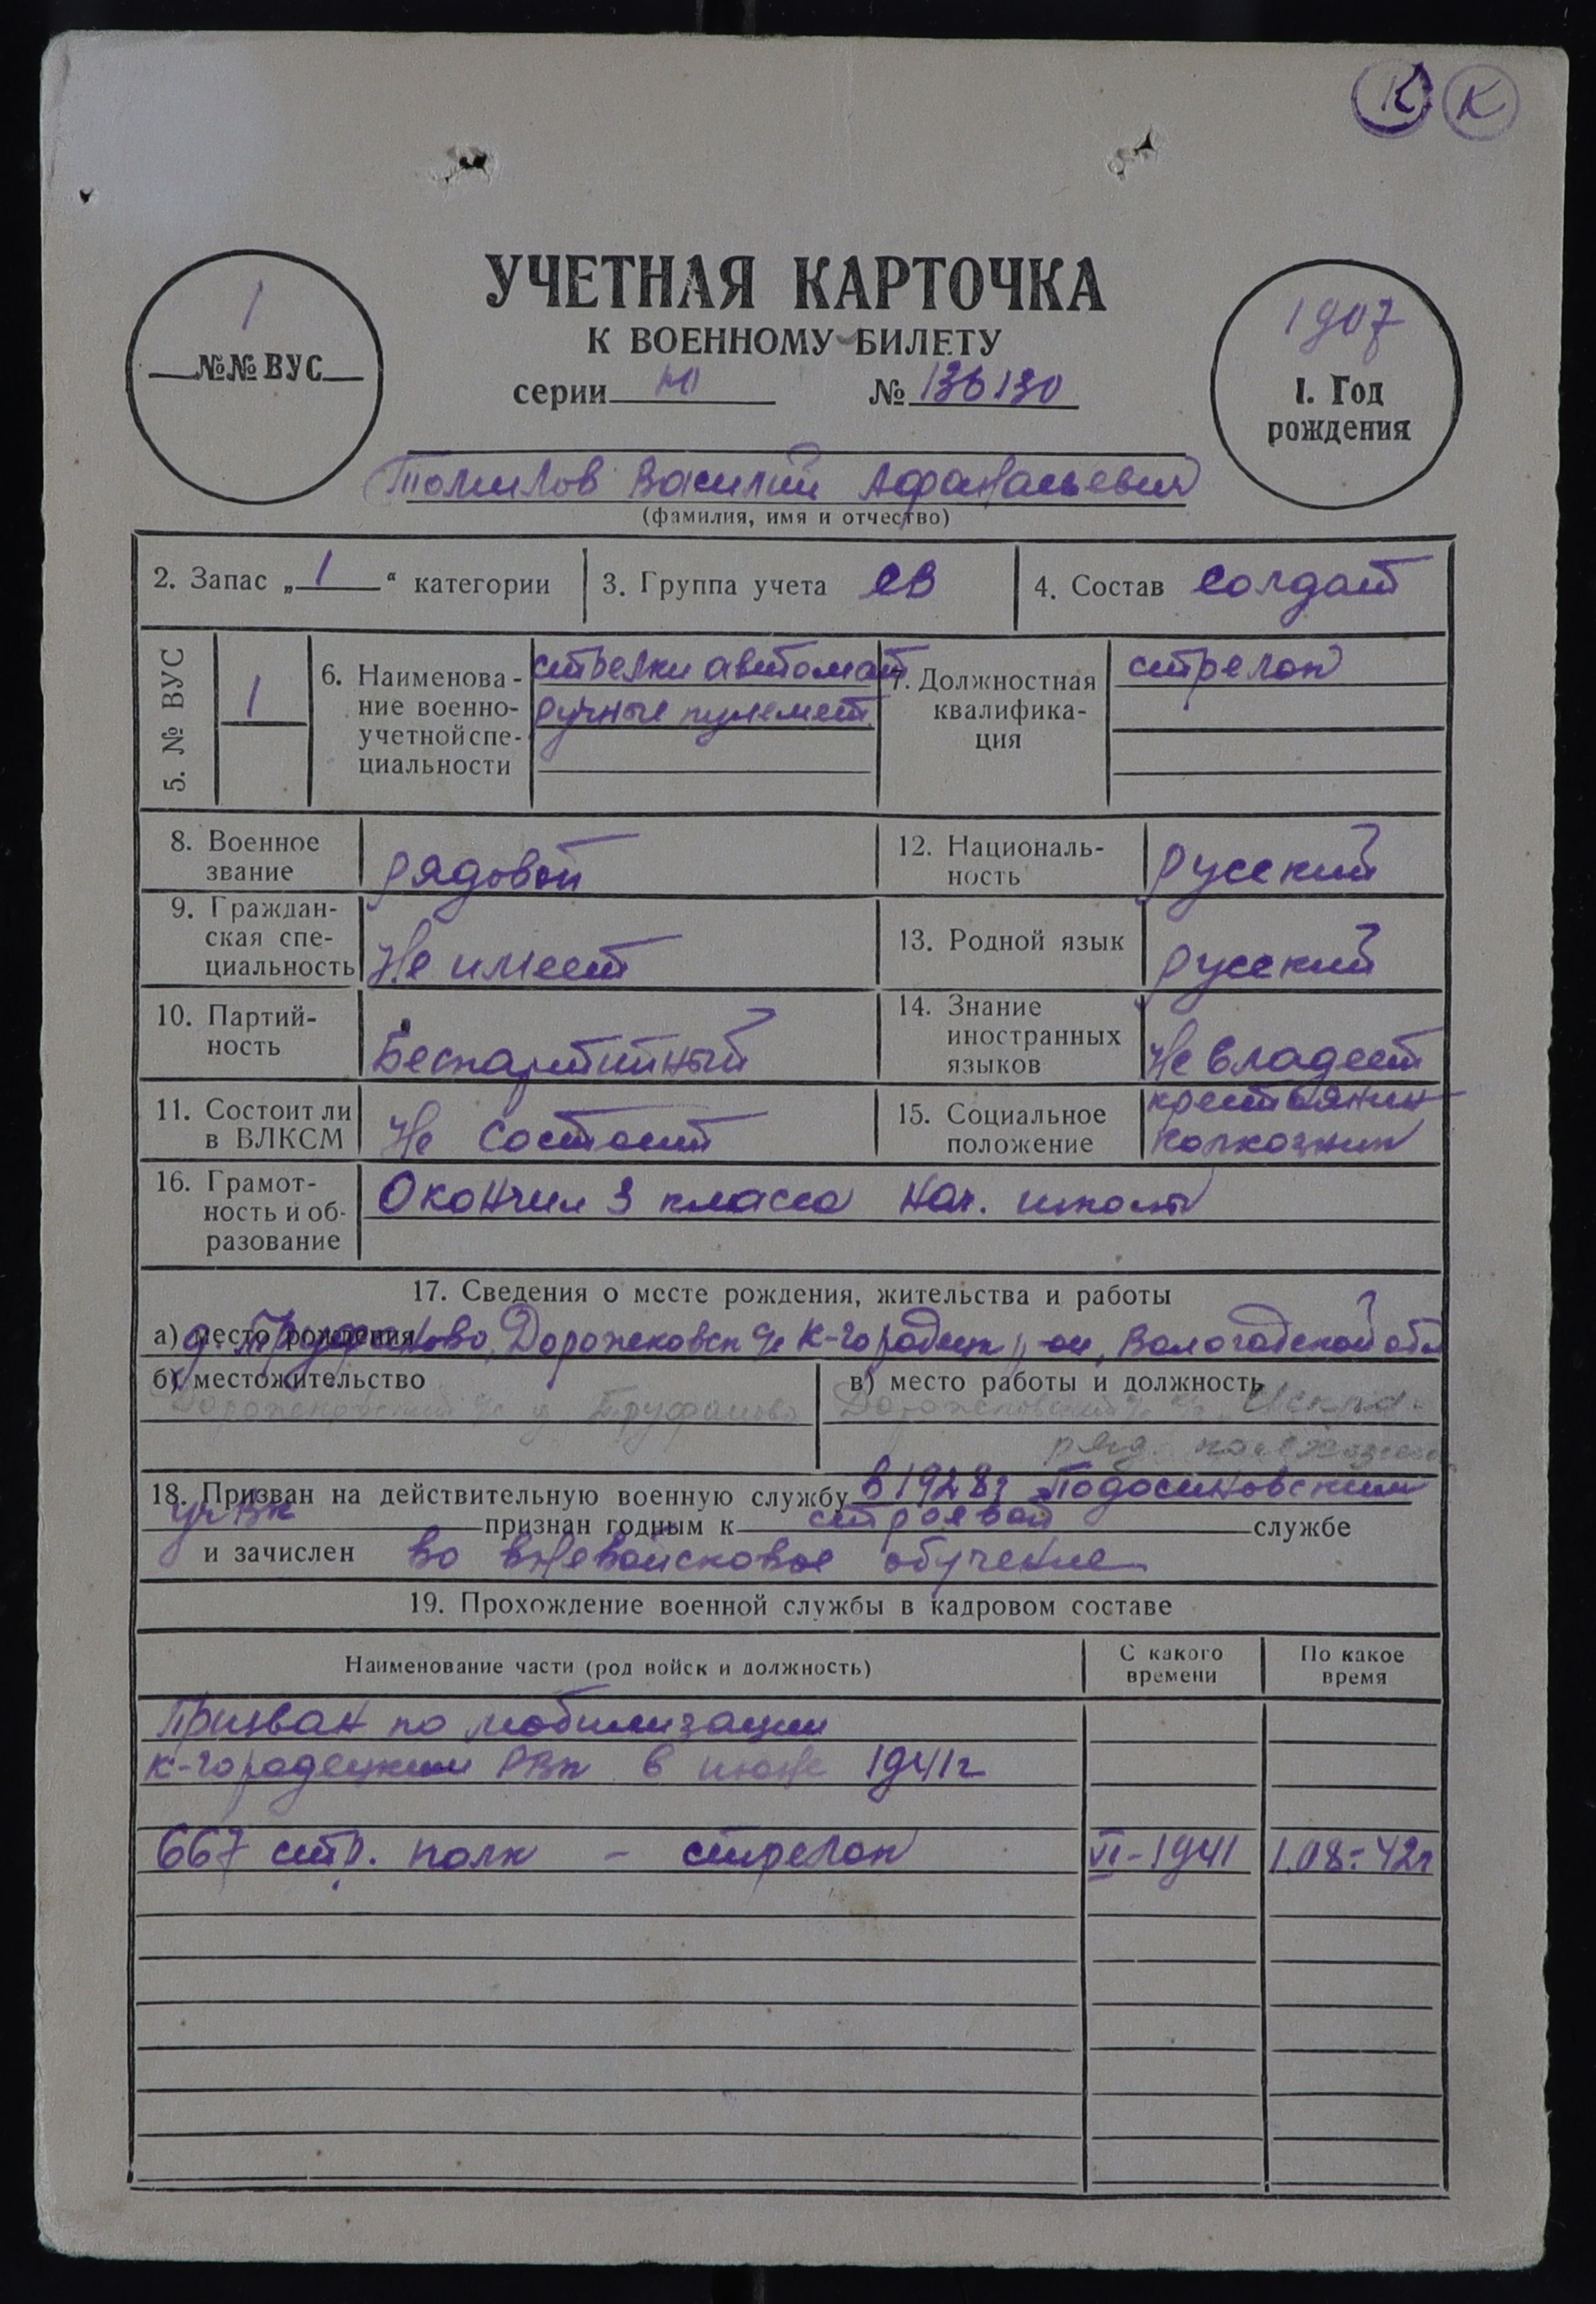 К К
УЧЕТНАЯ КАРТОЧКА
К ВОЕННОМУ БИЛЕТУ
серии № 136130
1
№№ ВУС
1907
1. Год
рождения
Томилов Василий Афанасьевич
(фамилия, имя и отчество)
2. Запас „1“ категории 3. Группа учета СВ 4. Состав солдат
5. № ВУС 1
6. Наименова- стрелки автомат
ние военно- ручные пулемет
учетной спе-
циальности
7. Должностная стрелок
квалифика-
ция
8. Военное
звание рядовой
12. Националь-
ность русский
9. Граждан-
ская спе-
циальность Не имеет
13. Родной язык русский
10. Партий-
ность Беспартийный
14. Знание
иностранных
языков Не владеет
11. Состоит ли
в ВЛКСМ Не состоит
15. Социальное крестьянин
положение колхозник
16. Грамот- Окончил 3 класса нач. школы
ность и об-
разование
17. Сведения о месте рождения, жительства и работы
а) место рождения д. Труфаново, Дорожковск с/с К-Городецк р-он, Вологодской обл
б) местожительство
Дорожковский с/с д. Труфаново
в) место работы и должность
Дорожковский с/с к/з "Искра"
ряд. колхозник
18. Призван на действительную военную службу в 1928г Подосиновским
УВК признан годным к строевой службе
и зачислен во вневойсковое обучение
19. Прохождение военной службы в кадровом составе
Наименование части (род войск и должность) С какого времени По какое время
Призван по мобилизации
К-Городецким РВК в июне 1941г
667 стр. полк - стрелок VI-1941 1.08-42г